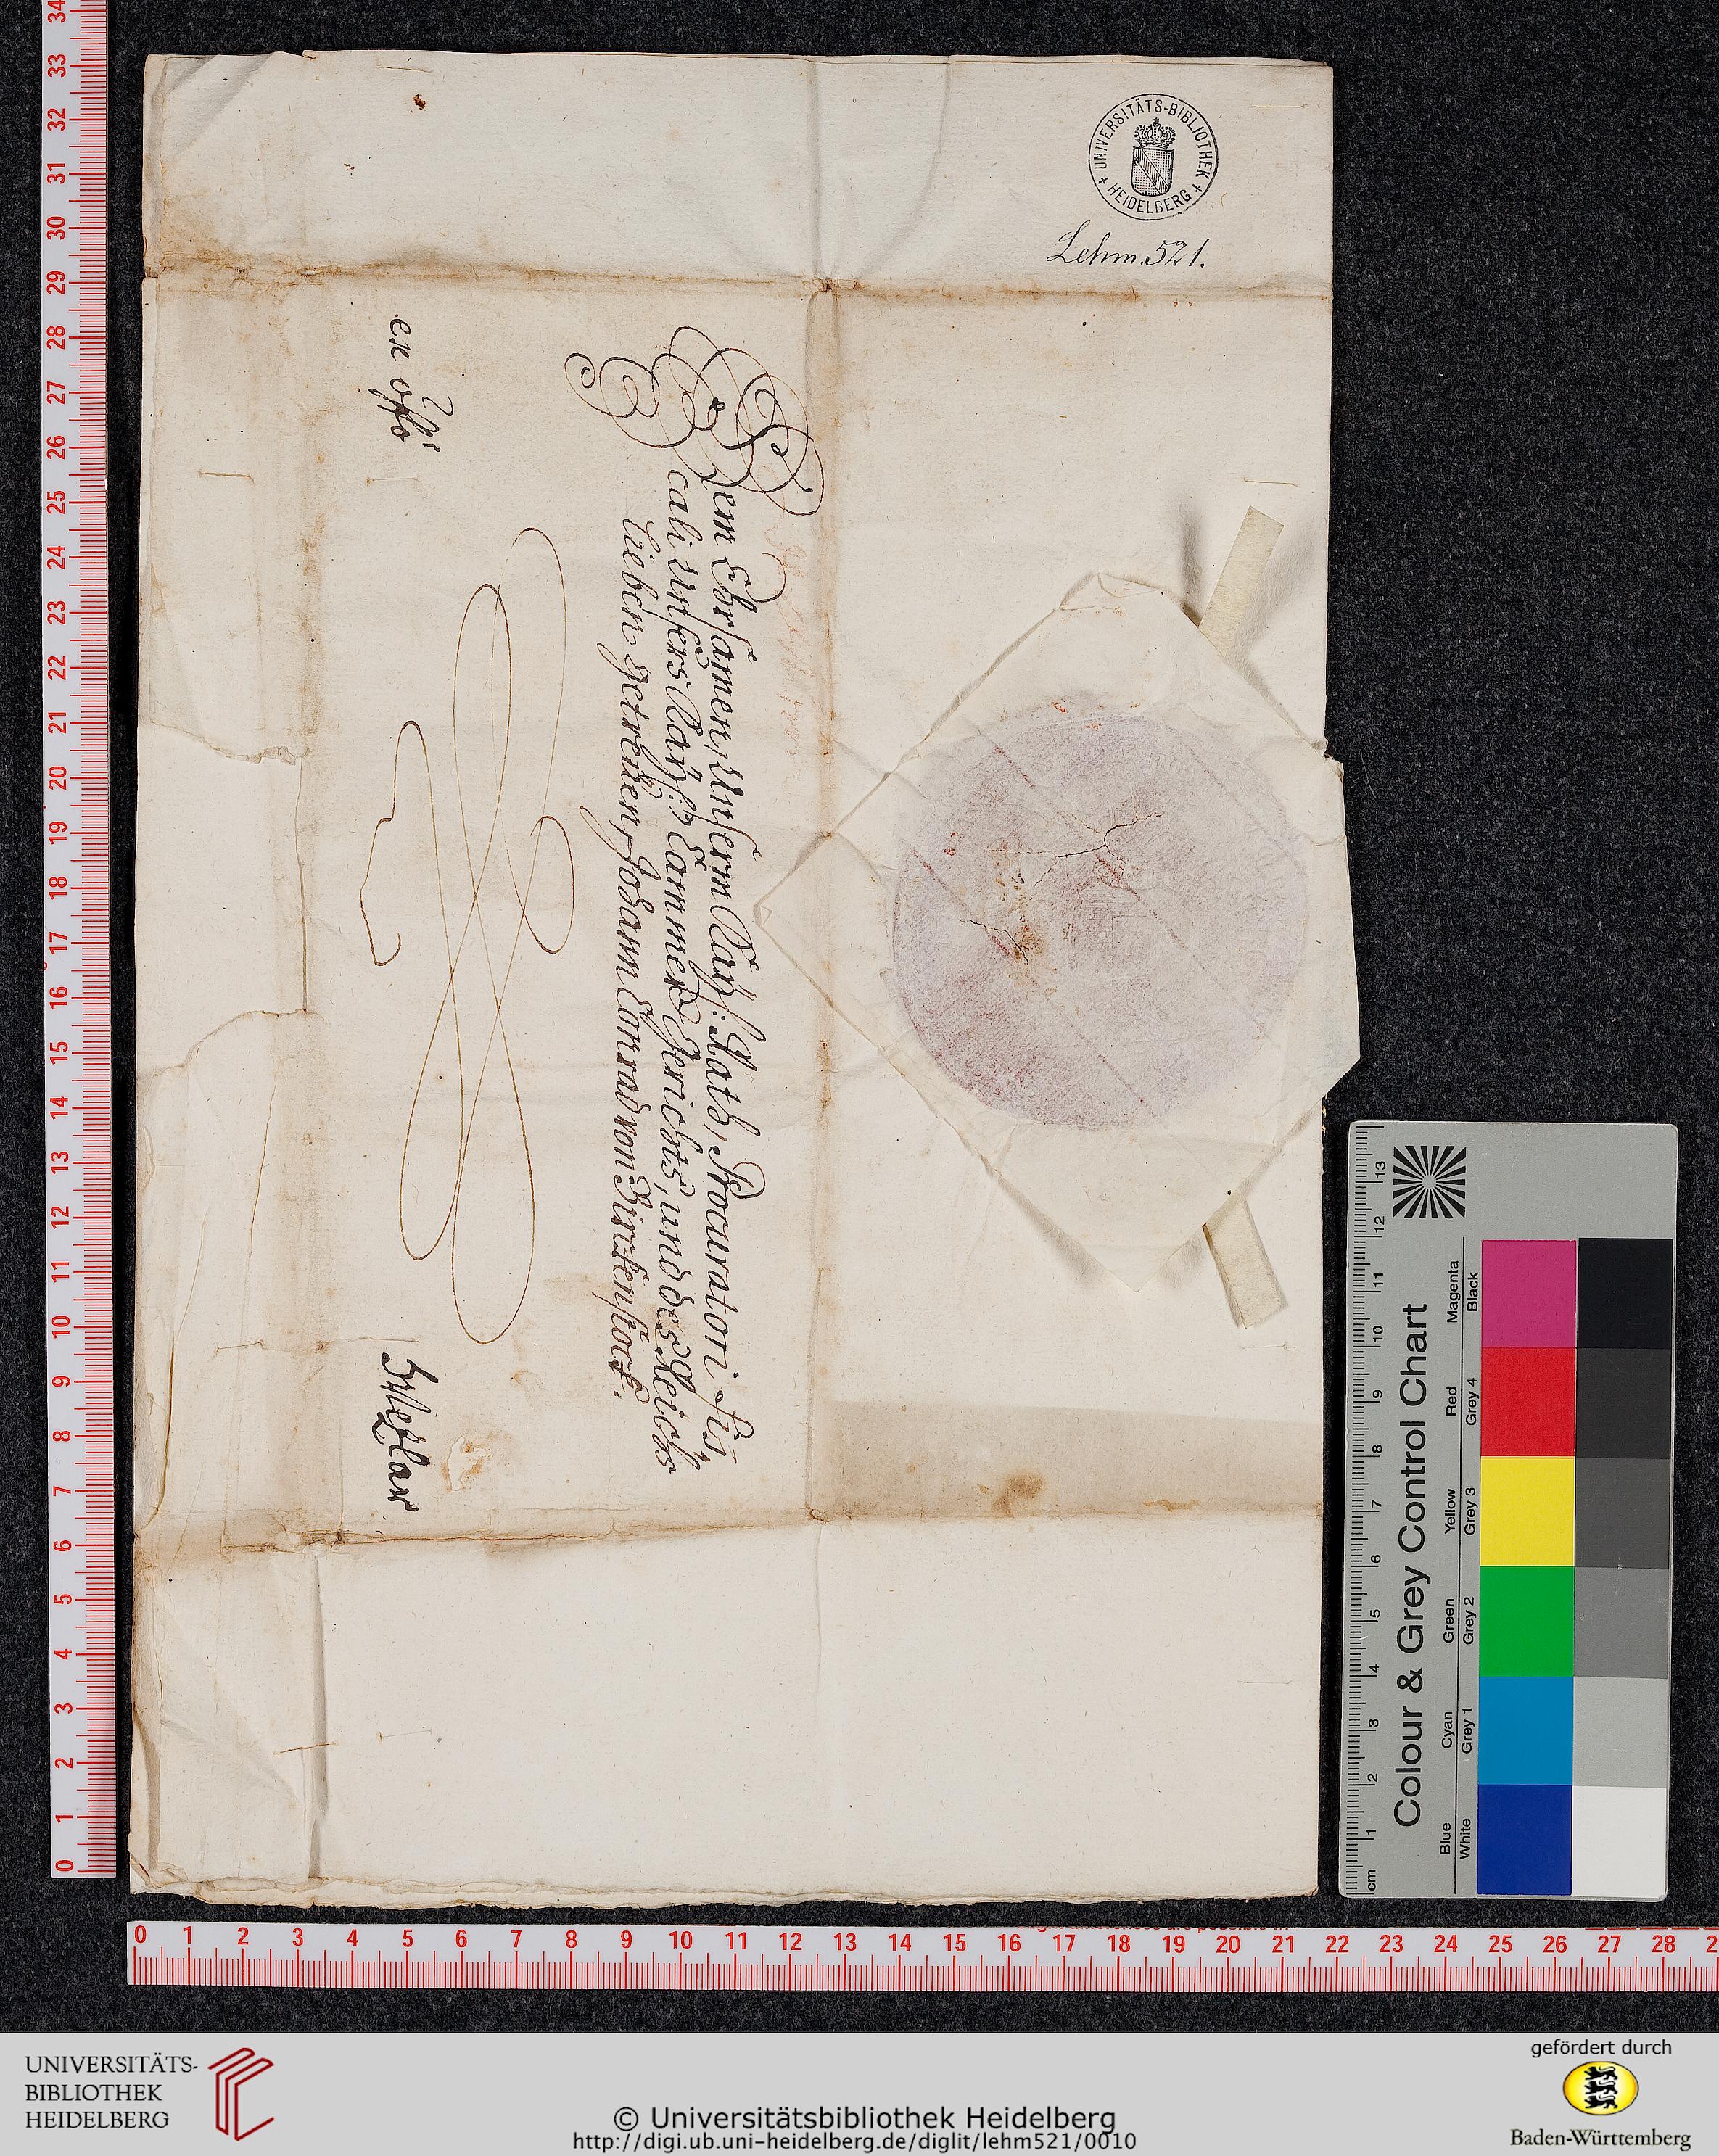 UNIVERSITÄTS-BIBLIOTHEK
+ HEIDELBERG +
Lehm. 521.
Dem Ehrsamen, Unserm Kaÿs: Rath, Procuratori fis,,
cali Unsers Kaÿs: Cammer Gerichts, und des Reichs
Lieben getreüen, Johann Conrad von Birckenstock.
ex offo
Wezlar.
Colour & Grey Control Chart
Blue Cyan Green Yellow Red Magenta
White Grey 1 Grey 2 Grey 3 Grey 4 Black
cm 1 2 3 4 5 6 7 8 9 10 11 12 13
34 33 32 31 30 29 28 27 26 25 24 23 22 21 20 19 18 17 16 15 14 13 12 11 10 9 8 7 6 5 4 3 2 1 0
0 1 2 3 4 5 6 7 8 9 10 11 12 13 14 15 16 17 18 19 20 21 22 23 24 25 26 27 28 2
UNIVERSITÄTS-
BIBLIOTHEK
HEIDELBERG
© Universitätsbibliothek Heidelberg
http://digi.ub.uni-heidelberg.de/diglit/lehm521/0010
gefördert durch
Baden-Württemberg